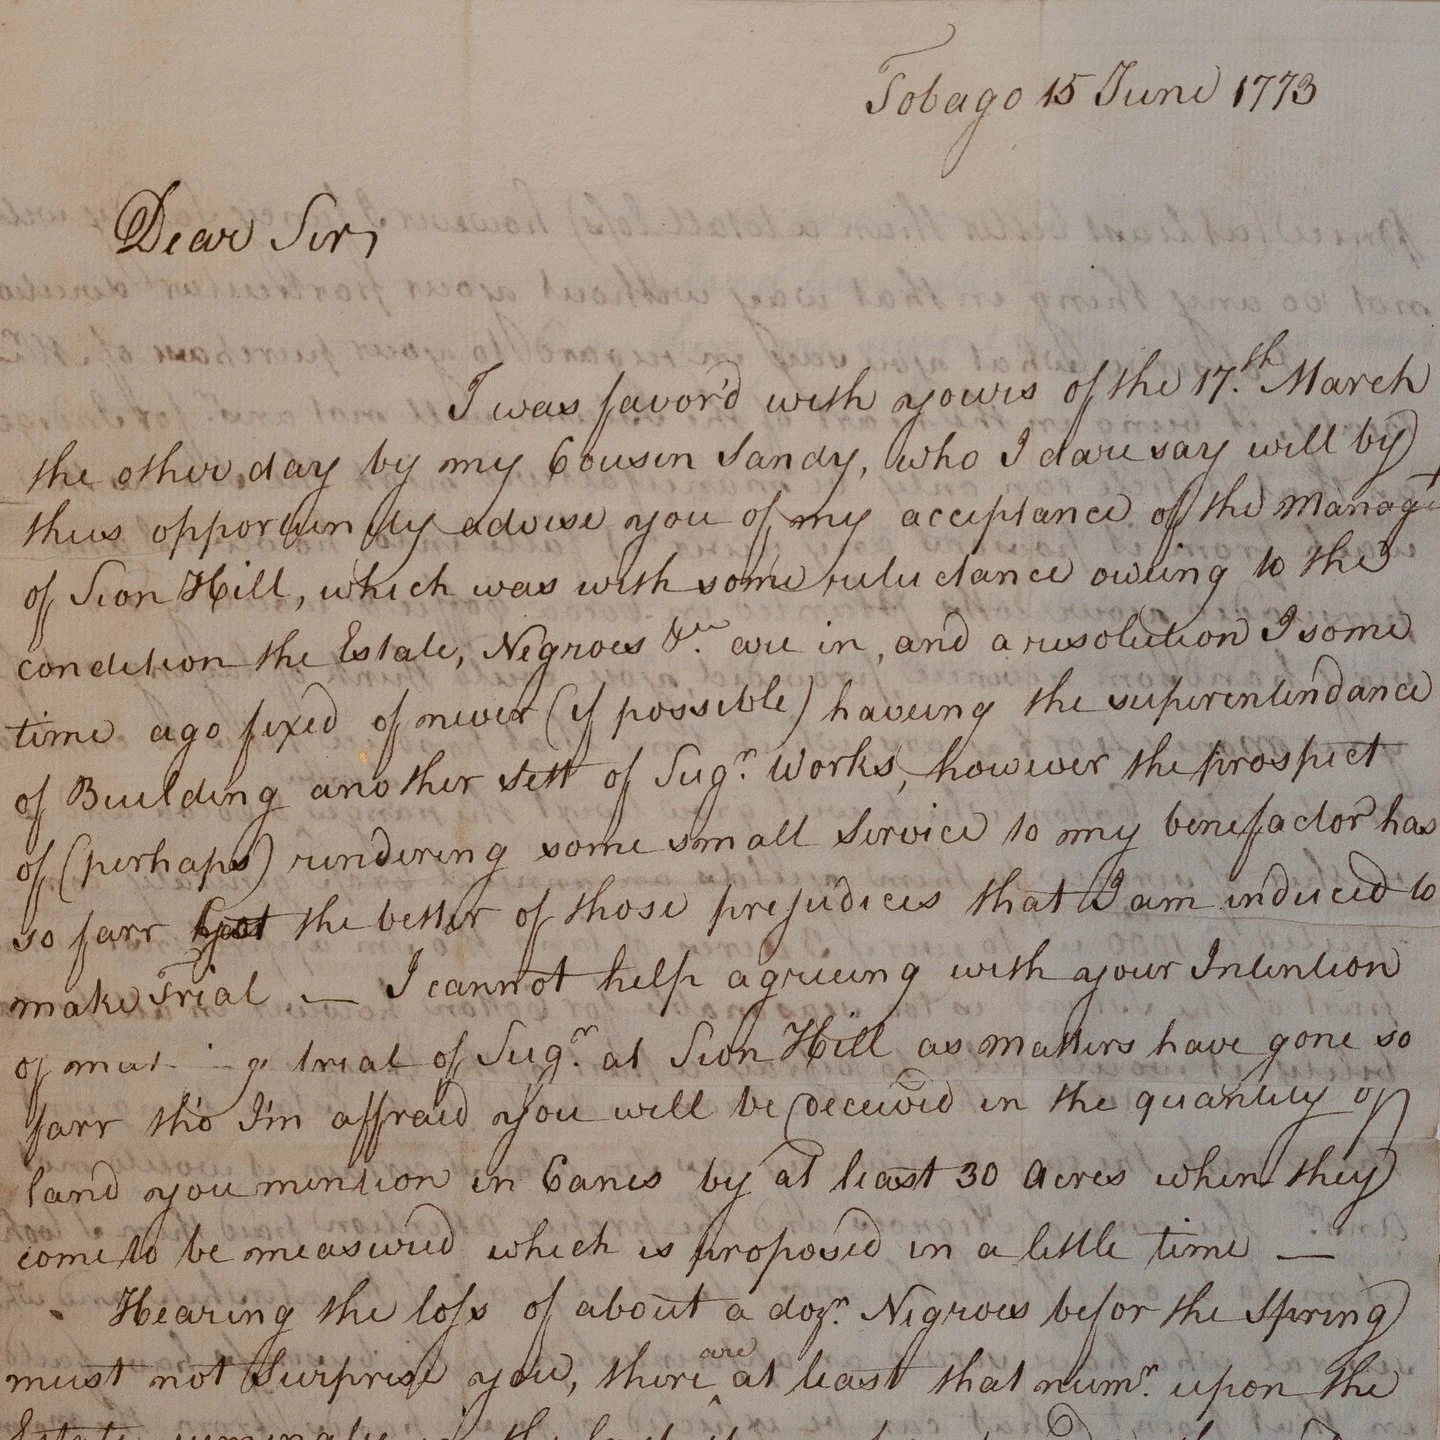 Tobago 15 June 1773
Dear Sir,
I was favor'd with yours of the 17.th March
the other day by my Cousin Sandy, who I dare say will by
this opportunity advise you of my acceptance of the
of Sion Hill, which was with some reluctance oweing to the
condition the Estate, Negroes &ca. are in, and a resolution I some
time ago fixed of never (if possible) haveing the superintendance
of Building another Sett of Sugr. Works, however the prospect
of (perhaps) rendering some small Service to my benefactor has
so farr got the better of those prejudices that I am induced to
make Trial — I cannot help agreeing with your Intention
of trial of Sugr. at Sion Hill as matters have gone so
farr tho I'm affraid you will be deceived in the quantity of
land you mention in Canes by at least 30 Acres when they
come to be measured which is proposed in a little time —
Hearing the loss of about a dozn. Negroes befor the Spring
must not Surprise you, there are at least that numr. upon the
Estate